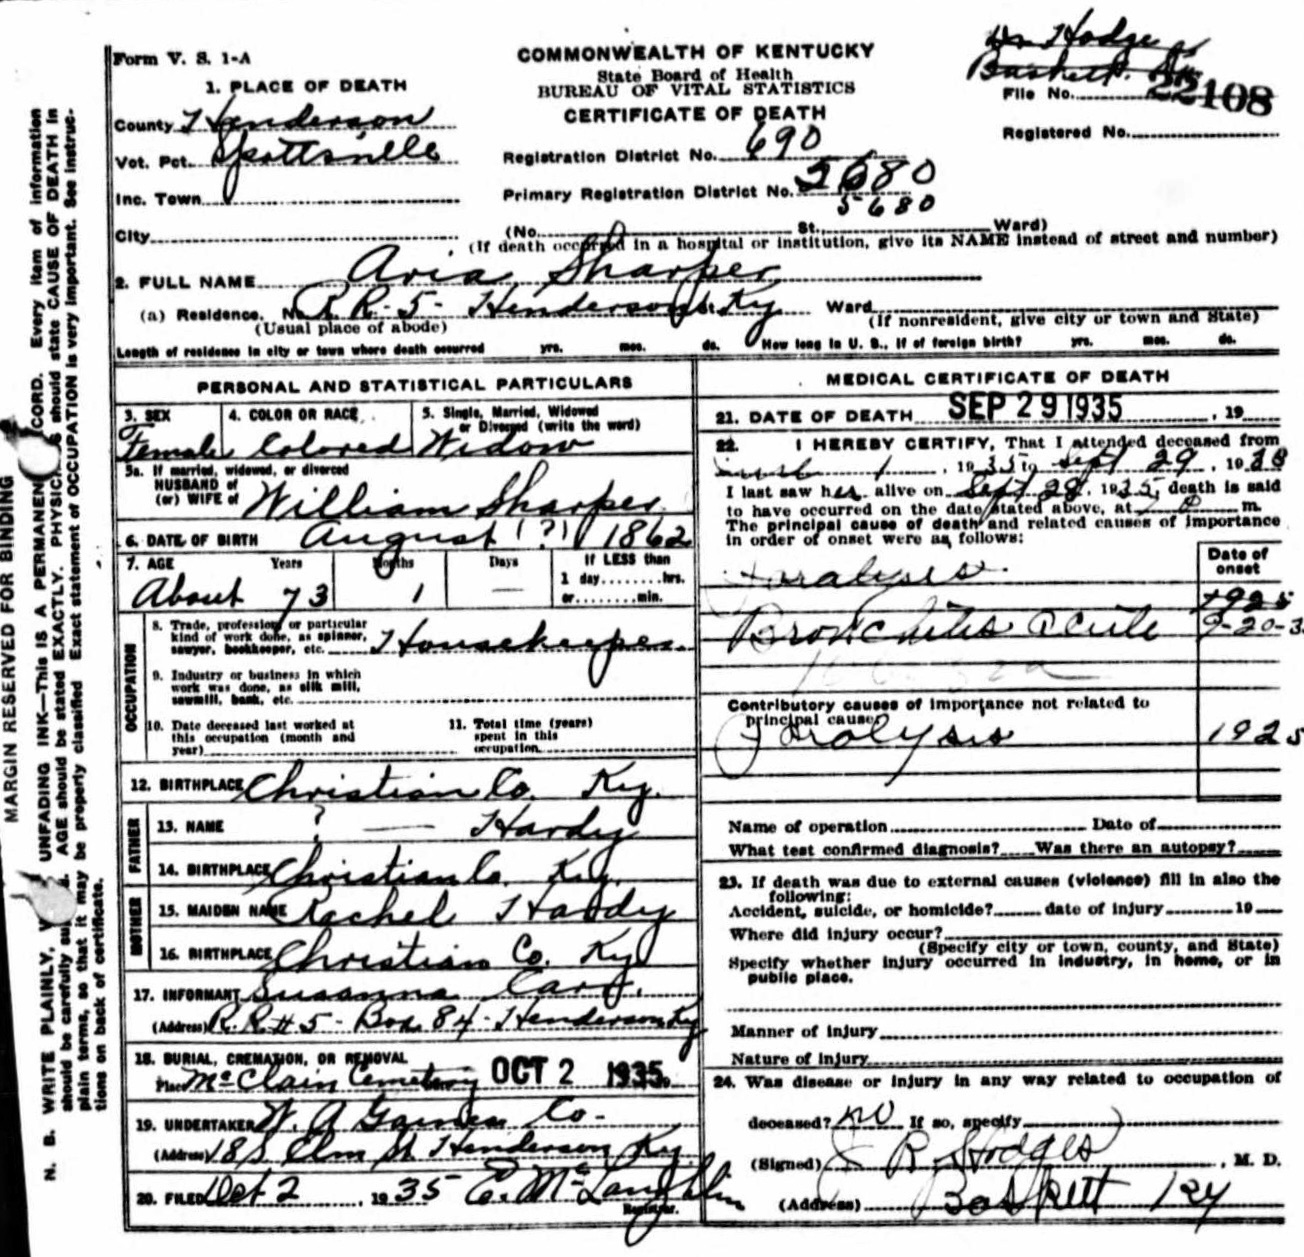 Form V. S. 1-A
COMMONWEALTH OF KENTUCKY
State Board of Health
BUREAU OF VITAL STATISTICS
CERTIFICATE OF DEATH
Dr Hodge
Baskett
File No. 22108
Registered No.
1. PLACE OF DEATH
County Henderson
Vot. Pct. Spottsville
Inc. Town
City
Registration District No. 690
Primary Registration District No. 5680
5680
(No. St., Ward)
(If death occurred in a hospital or institution, give its NAME instead of street and number)
2. FULL NAME Avia Sharper
(a) Residence. No. R R. 5 - Henderson, Ky Ward
(Usual place of abode)
(If nonresident, give city or town and State)
Length of residence in city or town where death occurred yrs. mos. ds. How long in U. S., if of foreign birth? yrs. mos. ds.
PERSONAL AND STATISTICAL PARTICULARS
3. SEX
Female
4. COLOR OR RACE
Colored
5. Single, Married, Widowed
or Divorced (write the word)
Widow
5a. If married, widowed, or divorced
HUSBAND of
(or) WIFE of William Sharper
6. DATE OF BIRTH August (?) 1862
7. AGE Years Months Days If LESS than
1 day........hrs.
or........min.
About 73 1 —
OCCUPATION
8. Trade, profession, or particular
kind of work done, as spinner,
sawyer, bookkeeper, etc. Housekeeper
9. Industry or business in which
work was done, as silk mill,
sawmill, bank, etc.
10. Date deceased last worked at
this occupation (month and
year)
11. Total time (years)
spent in this
occupation
12. BIRTHPLACE Christian Co. Ky.
FATHER
13. NAME ? — Hardy
14. BIRTHPLACE Christian Co. Ky.
MOTHER
15. MAIDEN NAME Rachel Hardy
16. BIRTHPLACE Christian Co. Ky
17. INFORMANT Susanna
(Address) R.R # 5 - Box 84 - Henderson Ky
18. BURIAL, CREMATION, OR REMOVAL
Place McClain Cemetery OCT 2 1935
19. UNDERTAKER W. A Gaines Co-
(Address) 18 S Elm St Henderson Ky
20. FILED Oct 2, 1935 E. McLaughlin
Registrar.
MEDICAL CERTIFICATE OF DEATH
21. DATE OF DEATH SEP 29 1935, 19
22. I HEREBY CERTIFY, That I attended deceased from
1, 1935 to Sept 29, 19
I last saw her alive on Sept 28, 1935, death is said
to have occurred on the date stated above, at m.
The principal cause of death and related causes of importance
in order of onset were as follows:
Date of
onset
Paralysis 1925
Bronchitis acute 9-20-3
Contributory causes of importance not related to
principal cause:
Paralysis 1925
Name of operation Date of
What test confirmed diagnosis? Was there an autopsy?
23. If death was due to external causes (violence) fill in also the
following:
Accident, suicide, or homicide? date of injury 19
Where did injury occur?
(Specify city or town, county, and State)
Specify whether injury occurred in industry, in home, or in
public place.
Manner of injury
Nature of injury
24. Was disease or injury in any way related to occupation of
deceased? no If so, specify
(Signed) J R Hodges, M. D.
(Address) Baskett Ky
MARGIN RESERVED FOR BINDING
N. B. WRITE PLAINLY, UNFADING INK—THIS IS A PERMANENT RECORD. Every item of information
should be carefully AGE should be stated EXACTLY. PHYSICIANS should state CAUSE OF DEATH in
plain terms, so that it may be properly classified Exact statement of OCCUPATION is very important. See instruc-
tions on back of certificate.